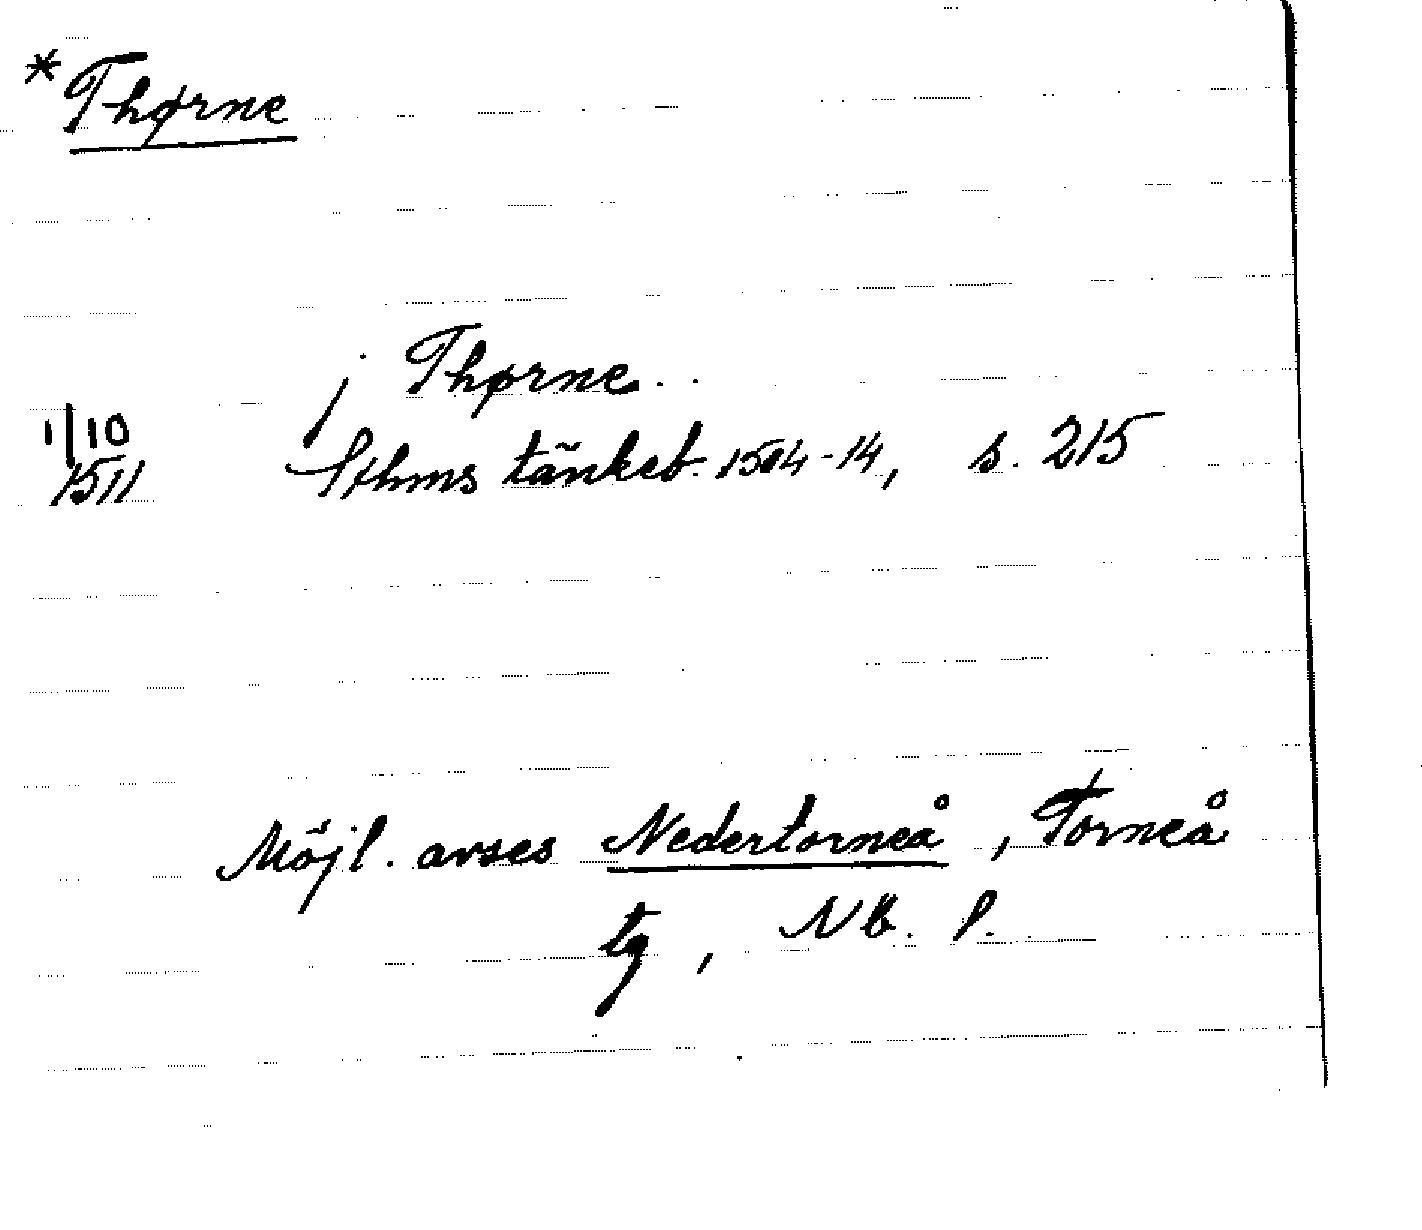 *Thørne
j Thørne
1/10
1511 Sthms tänkeb. 1504-14, s. 215
Möjl. avses Nedertorneå, Torneå
tg, Nb. l.